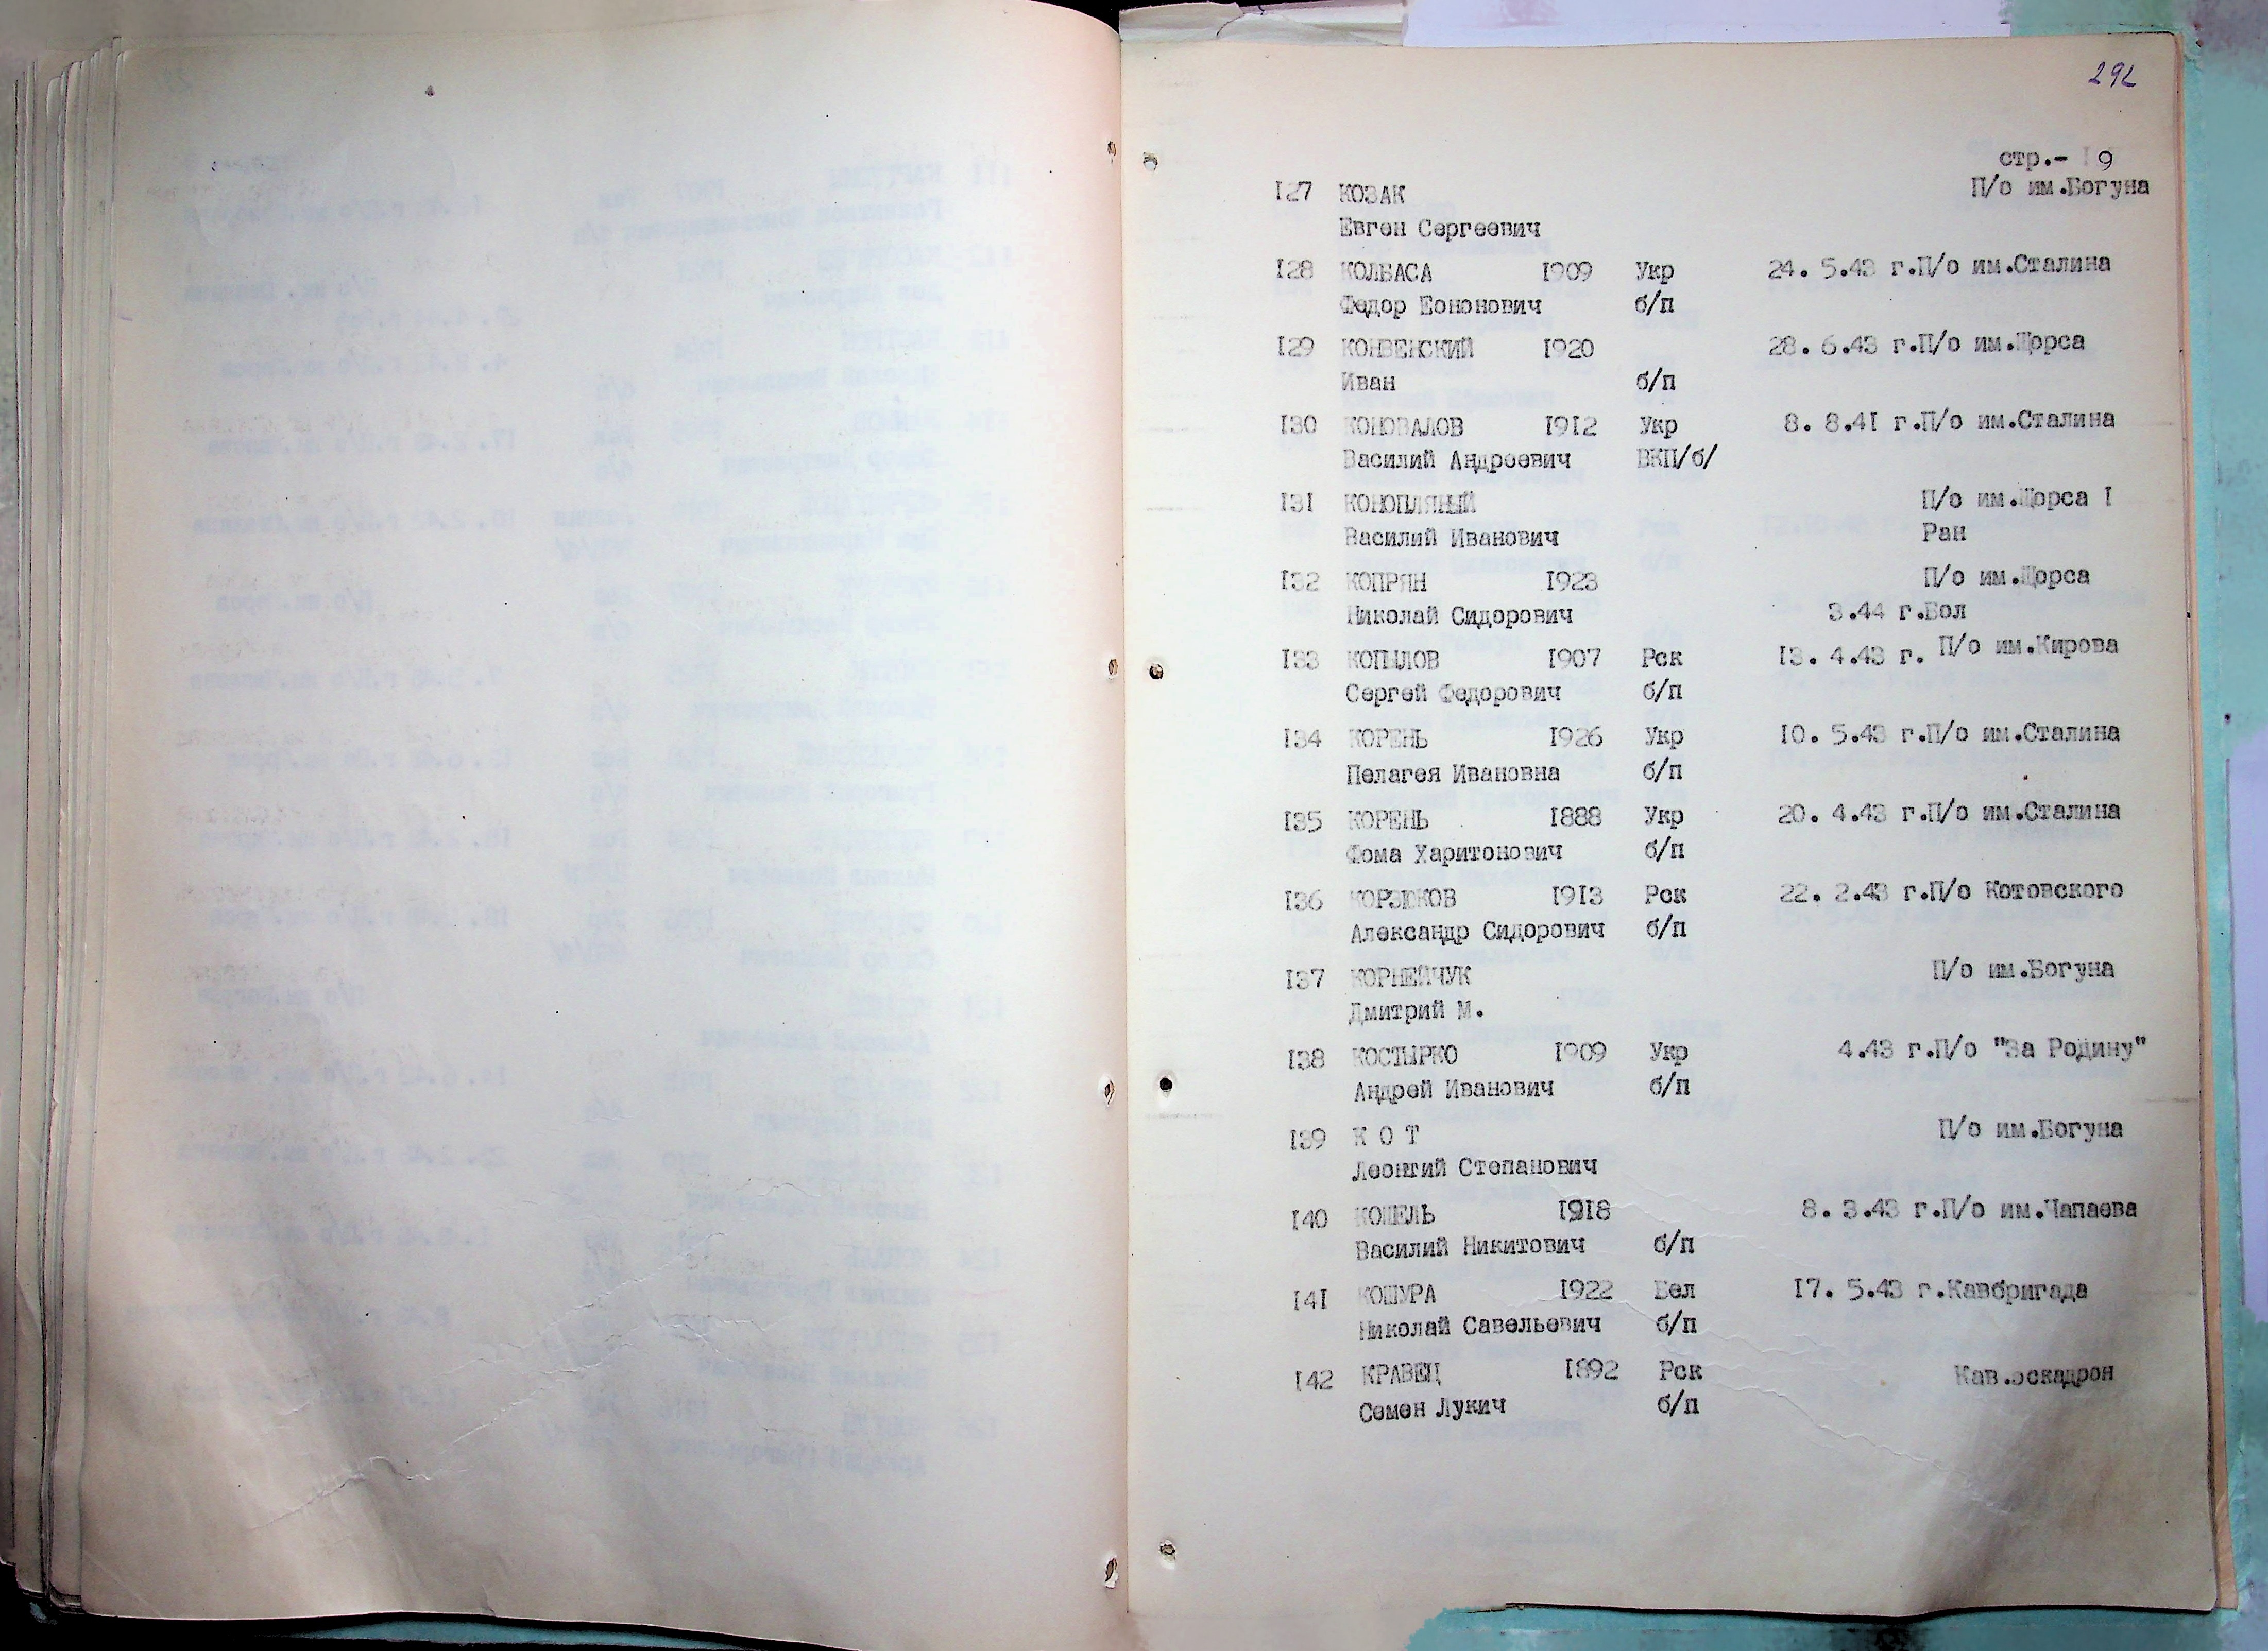 292
стр.- 9
127 КОЗАК П/о им.Богуна
Евген Сергеевич
128 КОЛБАСА 1909 Укр 24. 5.43 г.П/о им.Сталина
Федор Еононович б/п
129 КОНВЕНСКИЙ 1920 28. 6.43 г.П/о им.Щорса
Иван б/п
130 КОНОВАЛОВ 1912 Укр 8. 8.41 г.П/о им.Сталина
Василий Андреевич ВКП/б/
131 КОНОПЛЯНЫЙ П/о им.Щорса I
Василий Иванович Ран
132 КОПРЯН 1923 П/о им.Щорса
Николай Сидорович 3.44 г.Бол
133 КОПЫЛОВ 1907 Рск 13. 4.43 г. П/о им.Кирова
Сергей Федорович б/п
134 КОРЕНЬ 1926 Укр 10. 5.43 г.П/о им.Сталина
Пелагея Ивановна б/п
135 КОРЕНЬ 1888 Укр 20. 4.43 г.П/о им.Сталина
Фома Харитонович б/п
136 КОРЗЮКОВ 1913 Рск 22. 2.43 г.П/о Котовского
Александр Сидорович б/п
137 КОРНЕЙЧУК П/о им.Богуна
Дмитрий М.
138 КОСТЫРКО 1909 Укр 4.43 г.П/о "За Родину"
Андрей Иванович б/п
139 К О Т П/о им.Богуна
Леонтий Степанович
140 КОШЕЛЬ 1918 8. 3.43 г.П/о им.Чапаева
Василий Никитович б/п
141 КОШУРА 1922 Бел 17. 5.43 г.Кавбригада
Николай Савельевич б/п
142 КРАВЕЦ 1892 Рск Кав.эскадрон
Семен Лукич б/п